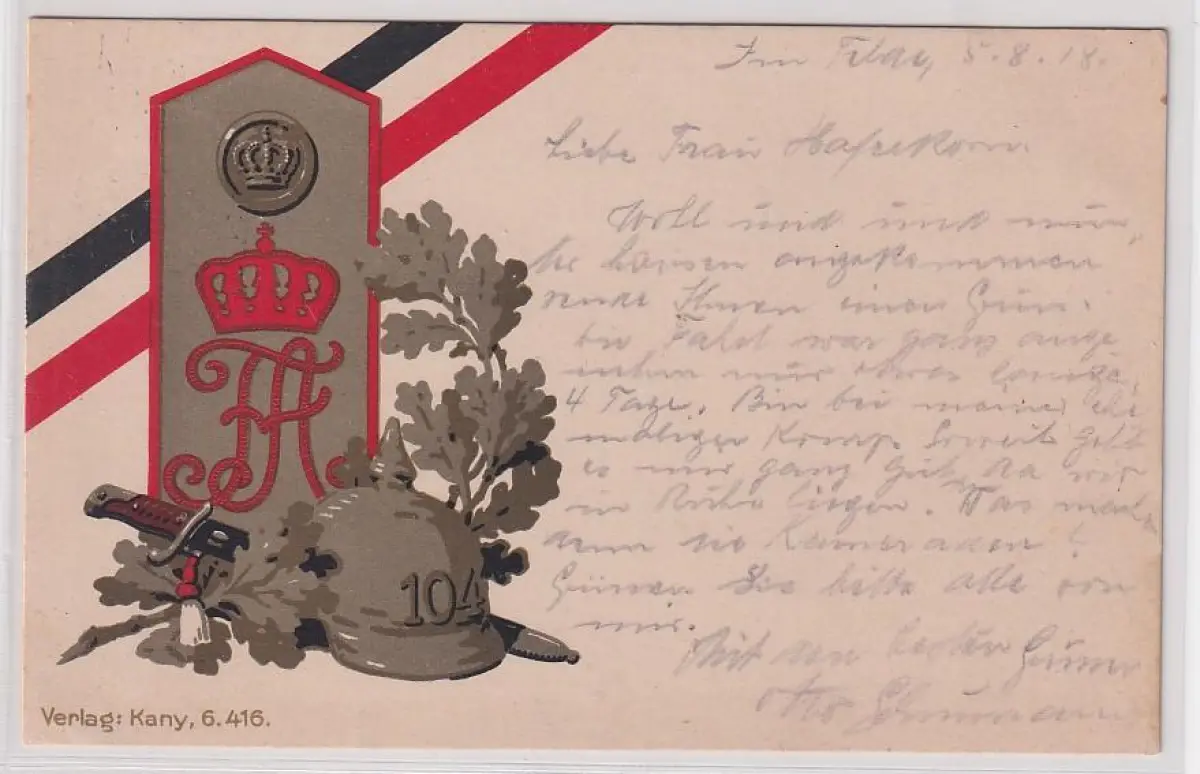 Im Felde, 5.8.18.
Liebe Frau Hasekorn.
Woll und und mun,
ter hausen angekommen
sende Ihnen einen Gruss.
die Fahrt war ganz ange
nehm nur etwas lange,
4 Tage. Bin bei meiner ehe
maligen Komp. Soweit geht
es mir ganz gut, da wir
in Ruhe liegen. Was mach,
denn die Kameraden?
Grüssen Sie bitte alle von
mir.
Mit den besten Grüssen
Otto
104
Verlag: Kany, 6.416.